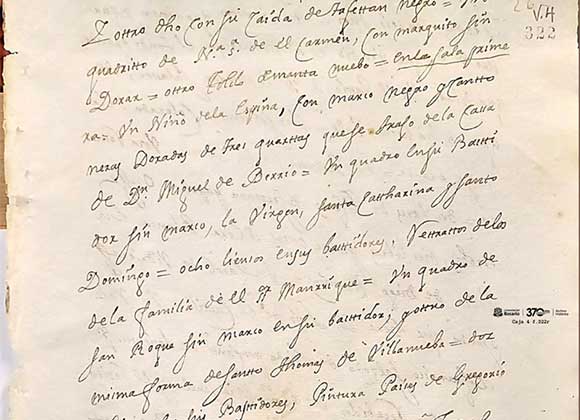 Y ottro dho con su Caida de tafettan negro =
quadritto de N.ª S.ª de el Carmen, con marquito sin
Dorar = ottro toldo demanta nuebo = en la sala prime
ra = Un Niño dela Espina, con marco negro y Cantto
neras Doradas de tres quarttas que se trajo de la Cassa
de Dn Miguel de Berrio = Un quadro en su Basti
dor sin marco, la Virgen, santa Cattharina y santo
Domingo = ocho lienzos en sus bastidores, Rettrattos de los
de la familia de el Sr Manrrique = Un quadro de
san Roque sin marco en su bastidor, y ottro de la
misma forma de santto thomas de Villanueba = dos
en sus Bastidores, Pintura Paises de Gregorio
V.H
322
Caja 4 f.322r